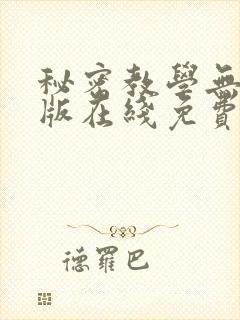 秘密教學無
版在綫免費
德羅巴